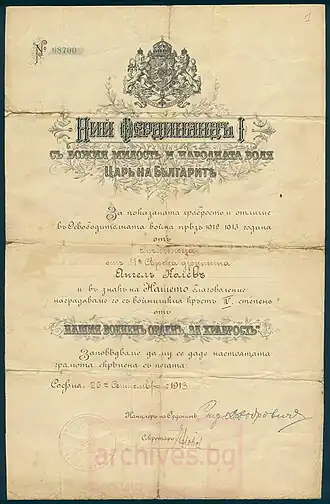 № 68700
1
Ний Фердинандъ I
съ Божия милость и народната воля
Царь на Българитѣ
За показаната храбрость и отличие
въ Освободителната война прѣзъ 1912 1913 година
отъ
отъ 11а Сѣрска дружина
Ангелъ
и въ знакъ на Нашето благоволение
награждаваме го съ войнишкия кръстъ IV степень
отъ
"Нашия военен орденъ за храбрость"
Заповѣдваме да му се даде настоящата
грамота скрѣпена съ печата.
София, 26 Септемврий 1913
Канцлеръ на Орденитѣ,
Секретарь
archives.bg